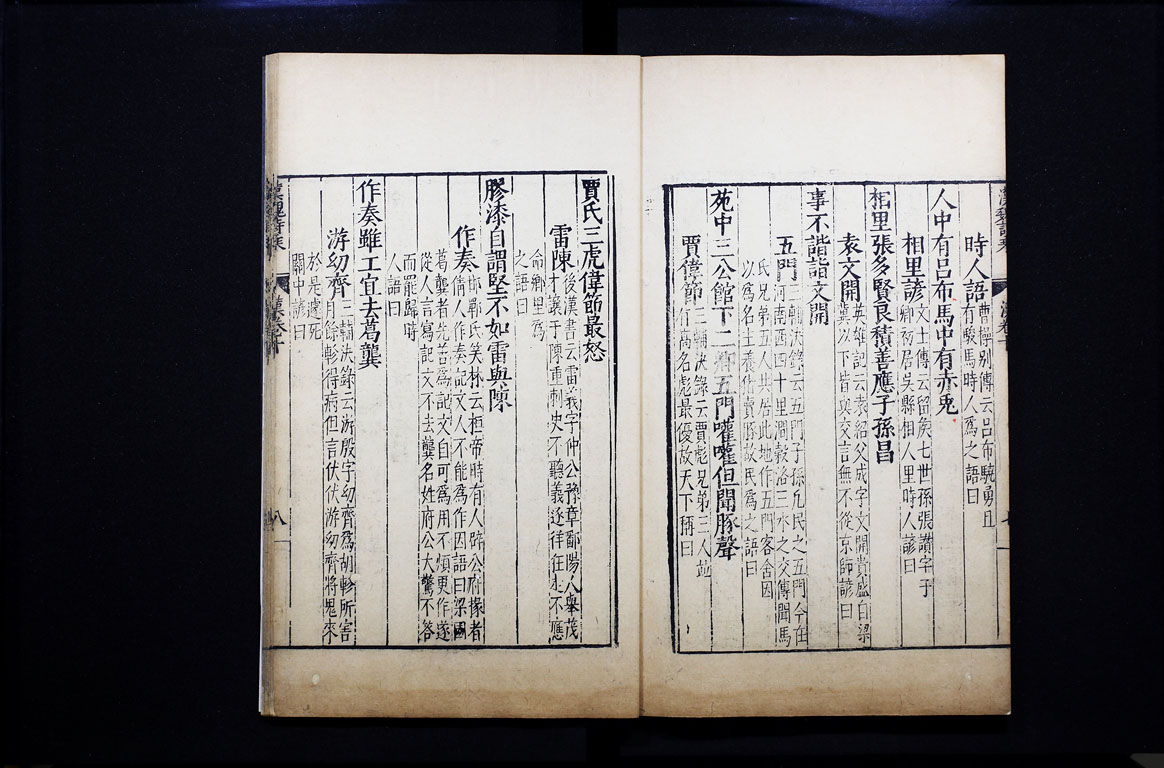 時人語
曹操别傳云呂布驍勇且
有駿馬時人爲之語曰
人中有呂布馬中有赤兎
相里諺
文士傳云留侯七世孫張讃字子
卿初居吳縣相人里時人諺曰
相里張多賢良積善應子孫昌
袁文開
英雄記云袁紹父成字文開貴盛自梁
冀以下皆與交言無不從京師諺曰
事不諧詣文開
五門
三輔決錄云五門子孫凡民之五門今在
河南西四十里澗穀洛三水之交傳聞馬
氏兄弟五人共居此地作五門客舍因
以爲名主養猪賣豚故民爲之語曰
苑中三公館下二卿五門嚾嚾但聞豚聲
賈偉節
三輔決錄云賈彪兄弟三人並
有高名彪最優故天下稱曰
賈氏三虎偉節最怒
雷陳
後漢書云雷義字仲公豫章鄱陽人舉茂
才讓于陳重刺史不聽義遂徉狂走不應
命鄉里爲
之語曰
膠漆自謂堅不如雷與陳
作奏
邯鄲氏笑林云桓帝時有人辟公府掾者
倩人作奏記文人不能爲作因語曰梁國
葛龔者先善爲記文自可爲用不煩更作遂
從人言寫記文不去龔名姓府公大驚不答
而罷歸時
人語曰
作奏雖工宜去葛龔
游幼齊
三輔決錄云游殷字幼齊爲胡軫所害
月餘軫得病但言伏伏游幼齊將鬼來
於是遂死
關中諺曰
八